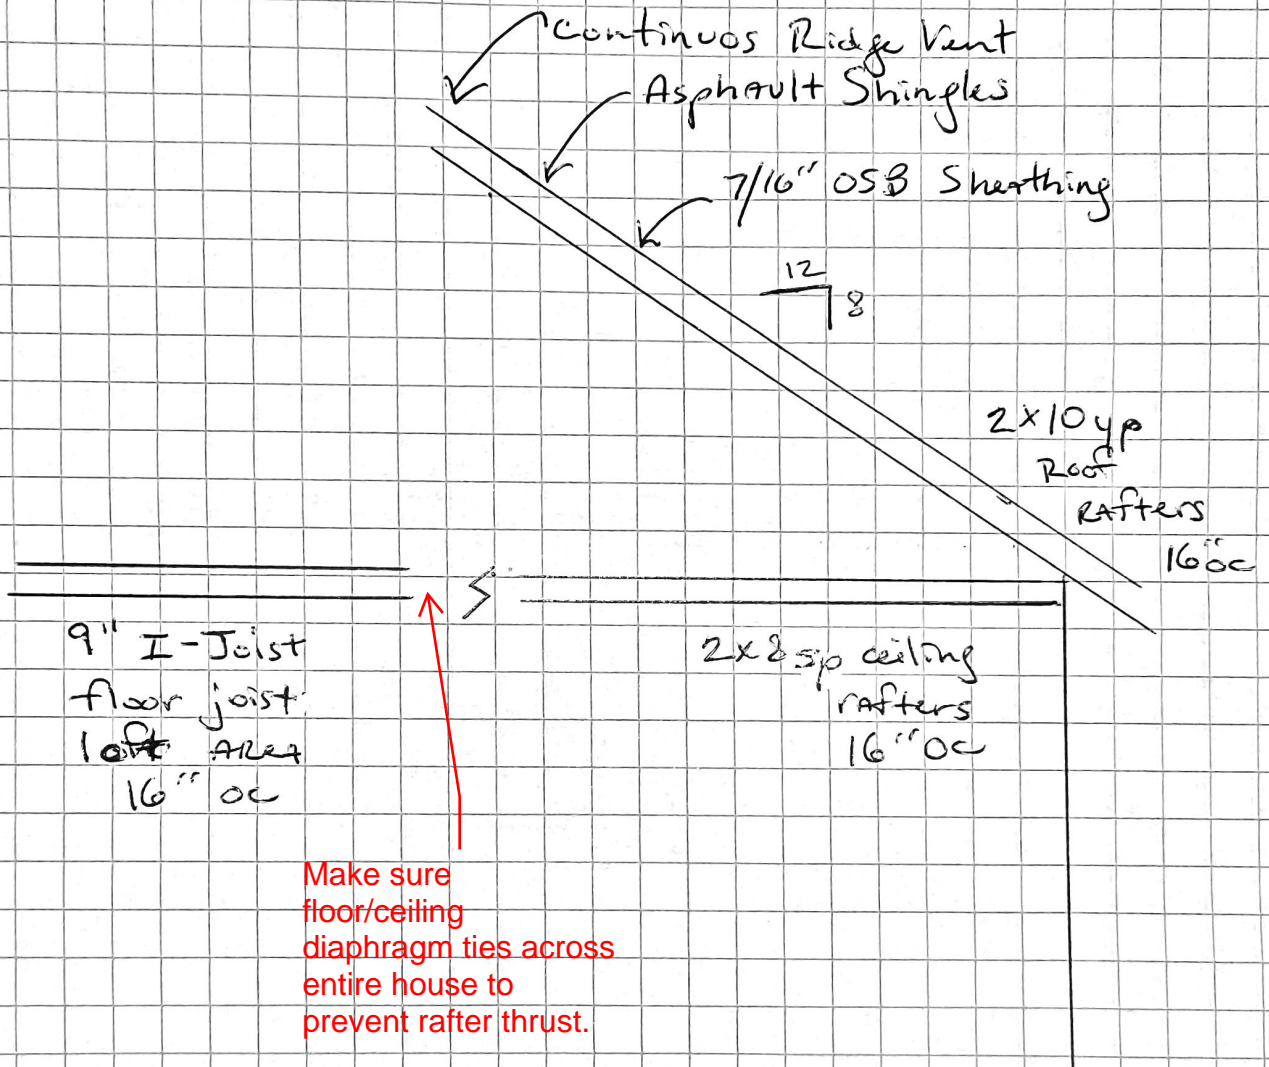 Continuos Ridge Vent
Asphault Shingles
7/16" OSB Sheathing
12
8
2x10 yp
Roof
RAfters
16" oc
9" I-Joist
floor joist
loft AREA
16" oc
2x8 sp ceiling
rAfters
16" OC
Make sure
floor/ceiling
diaphragm ties across
entire house to
prevent rafter thrust.